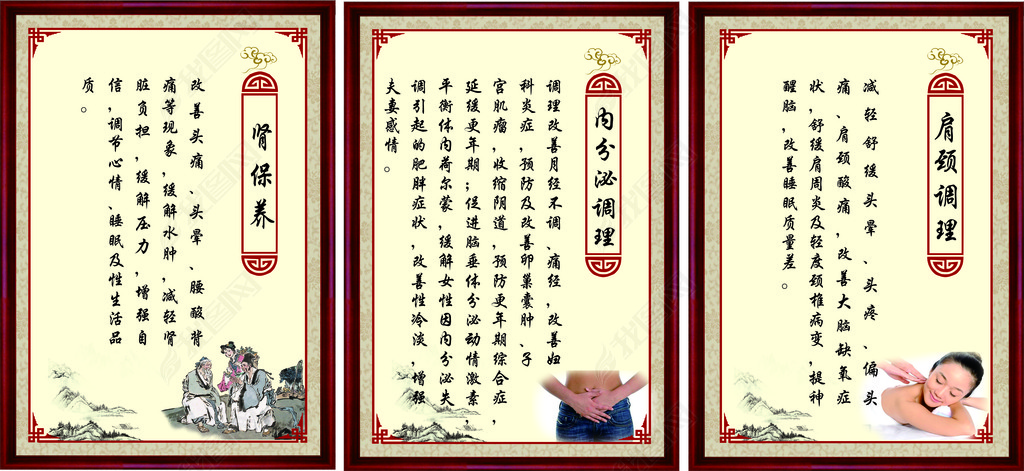 肾保养
改善头痛、头晕、腰酸背
痛等现象,缓解水肿,减轻肾
脏负担,缓解压力,增强自
信,调节心情、睡眠及性生活品
质。
内分泌调理
调理改善月经不调、痛经,改善妇
科炎症,预防及改善卵巢囊肿、子
宫肌瘤,收缩阴道,预防更年期综合症,
延缓更年期;促进脑垂体分泌动情激素,
平衡体内荷尔蒙,缓解女性因内分泌失
调引起的肥胖症状,改善性冷淡,增强
夫妻感情。
肩颈调理
减轻舒缓头晕、头疼、偏头
痛、肩颈酸痛,改善大脑缺氧症
状,舒缓肩周炎及轻度颈椎病变,提神
醒脑,改善睡眠质量差。